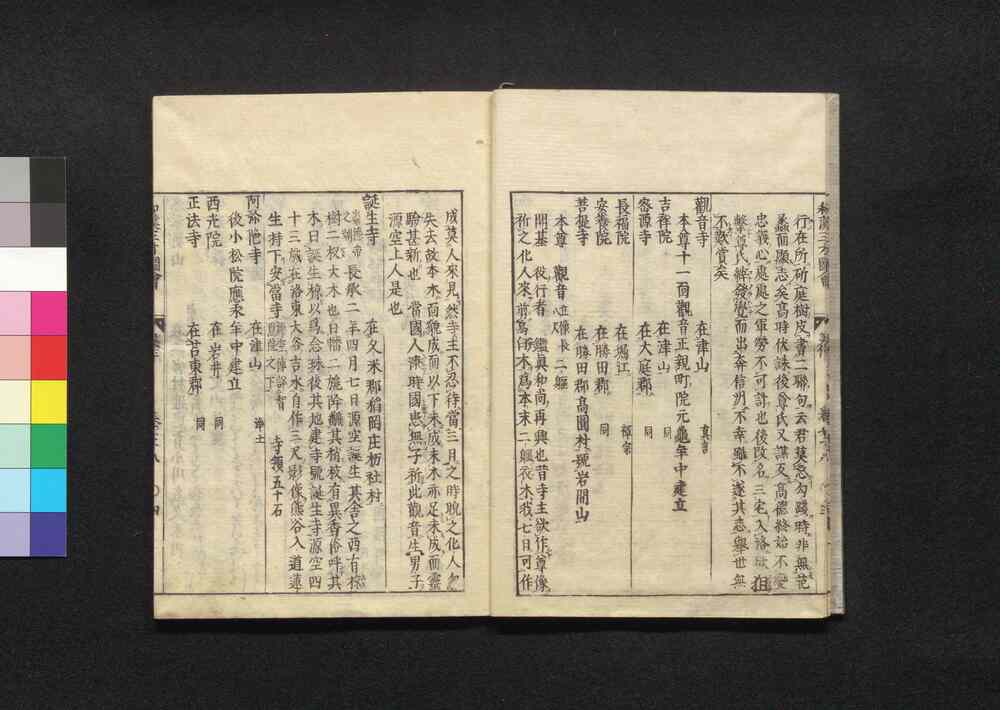 行在所斫庭樹皮書二聯句云君莫忘勾踐時非無范
蠡而顯志矣高時伏誅後尊氏又謀反高德終始不變
忠義心處處之軍勞不可計也後改名三宅入洛欲狙
擊尊氏計發覺而出奔信州不幸雖不遂其志舉世無
不歎賞矣
觀音寺 在津山 真言
本尊十一面觀音正親町院元龜年中建立
吉祥院 在津山 同
沓源寺 在大庭郡 同
長福院 在鴻江 禪宗
安養院 在勝田郡 同
菩提寺 在勝田郡高圓村號岩間山
本尊 觀音立像長二軀
開基 役行者 鑑真和尚再興也昔寺主欲作尊像
祈之化人來前寫白木爲本末二軀衣木我七日可作
成莫人來見然寺主不忍待當三日之時覘之化人忽
失去故本木面貌成而以下未成末木亦足未成而靈
驗甚新也 當國人漆時國患無子祈此觀音生男子
源空上人是也
誕生寺 在久米郡稻岡庄栃社村
長承二年四月七日源空誕生其舍之西有椋
樹二杈大木也日幡二旒降飜其梢枝有異香俗呼其
木曰誕生椋以爲念珠後其地建寺號誕生寺源空四
十三歲在洛東大谷吉水自作三尺影像熊谷入道蓮
生持下安當寺 寺領五十石
阿彌陀寺 在津山 淨土
後小松院應永年中建立
西光院 在岩井 同
正法寺 在苫東郡 同